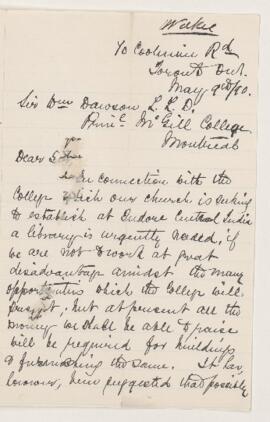 Wilkie
70 Coolmine Rd
Toronto Ont.
May 9th/90.
Sir Wm Dawson L.L.D.
Princ. McGill College
Montreal
Dear Sir
In connection with the
College which our church is seeking
to establish at Indore Central India
a library is urgently needed, if
we are not to work at great
disadvantage amidst the many
opportunities which the College will
present; but at present all the
money we shall be able to raise
will be required for buildings
& furnishing the same. It has,
however, been suggested that possibly